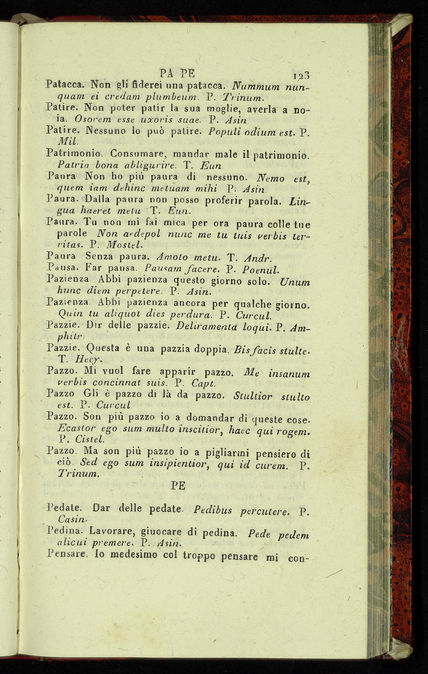 PA PE 123
Patacca. Non gli fiderei una patacca. Nummum nun-
quam ei credam plumbeum. P. Trinum.
Patire. Non poter patir la sua moglie, averla a no-
ia. Osorem esse uxoris suae. P. Asin
Patire. Nessuno lo può patire. Populi odium est. P.
Mil.
Patrimonio. Consumare, mandar male il patrimonio.
Patria bona abligurire. T. Eun
Paura Non ho più paura di nessuno. Nemo est,
quem iam dehinc metuam mihi P. Asin
Paura. Dalla paura non posso proferir parola. Lin-
gua haeret metu T. Eun.
Paura. Tu non mi fai mica per ora paura colle tue
parole Non aedepol nunc me tu tuis verbis ter-
ritas. P. Mostel.
Paura Senza paura. Amoto metu. T. Andr.
Pausa. Far pausa. Pausam facere. P. Poenul.
Pazienza Abbi pazienza questo giorno solo. Unum
hunc diem perpetere. P. Asin.
Pazienza. Abbi pazienza ancora per qualche giorno.
Quin tu aliquot dies perdura. P. Curcul.
Pazzie. Dir delle pazzie. Deliramenta loqui. P. Am-
phitr
Pazzie. Questa è una pazzia doppia. Bis facis stulte.
T. Hecy.
Pazzo. Mi vuol fare apparir pazzo. Me insanum
verbis concinnat suis. P. Capt.
Pazzo Gli è pazzo di là da pazzo. Stultior stulto
est. P. Curcul
Pazzo. Son più pazzo io a domandar di queste cose.
Ecastor ego sum multo inscitior, haec qui rogem.
P. Cistel.
Pazzo. Ma son più pazzo io a pigliarmi pensiero di
ciò. Sed ego sum insipientior, qui id curem. P.
Trinum.
PE
Pedate. Dar delle pedate. Pedibus percutere. P.
Casin.
Pedina. Lavorare, giuocare di pedina. Pede pedem
alicui premere. P. Asin.
Pensare. Io medesimo col troppo pensare mi con-